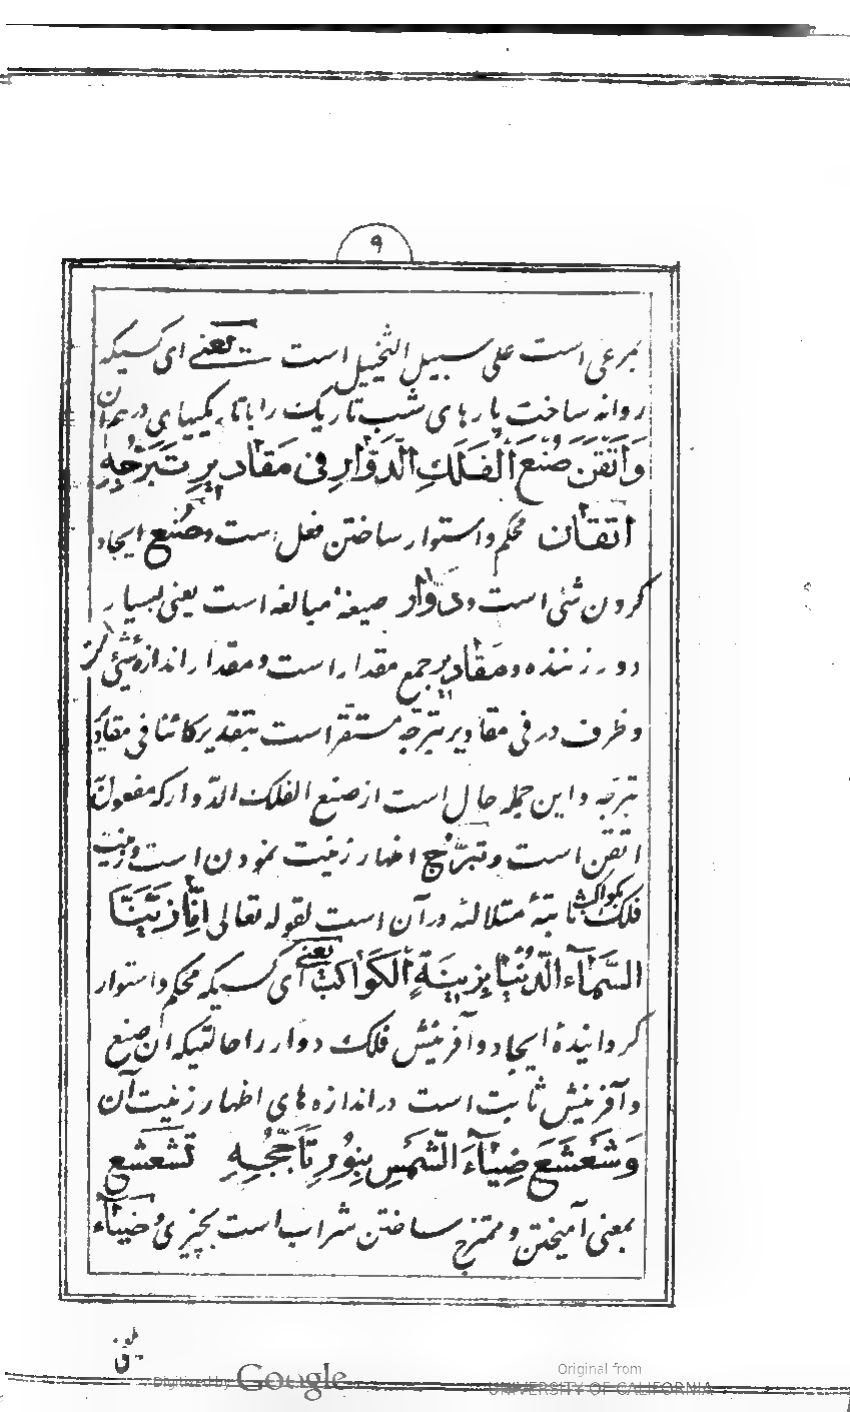 ۹
بمرعی است علی سبیل التخییل است یعنے ای کسیکه
روانه ساخت پارهای شب تاریک را باتاریکیهای درهم آن
وَاَتْقَنَ صُنْعَ الْفَلَكِ الدَّوَّارِ فِی مَقَادِیرِ تَبَرُّجِهِ
اتقان محکم و استوار ساختن فعل است و صُنع ایجاد
کردن شئی است و دَوّار صیغهٔ مبالغه است یعنی بسیار
دور زننده و مَقادیر جمع مقدار است و مقدار اندازهٔ شئی
و ظرف در فی مقادیر تبرّجه مستقر است بتقدیر کائنا فی مقادیر
تبرّجه و این جمله حال است از صنع الفلک الدّوار که مفعول
اتقن است و تبرّج اظهار زینت نمودن است و زینت
فلک بکواکب ثابتهٔ متلالئه در آن است لقوله تعالی اِنَّا زَیَّنَّا
السَّمَآءَ الدُّنْیَا بِزِینَةٍ الْکَوَاکِبِ یعنے ای کسیکه محکم و استوار
گردانیدهٔ ایجاد و آفرینش فلک دوار را حالتیکه آن صنع
و آفرینش ثابت است در اندازه های اظهار زینت آن
وَشَعْشَعَ ضِیَآءَ الشَّمْسِ بِنُوْرِ تَاَجُّجِهِ تشعشع
بمعنی آمیختن و ممتزج ساختن شراب است بچیزی و ضیآء
Digitized by Google
Original from
UNIVERSITY OF CALIFORNIA